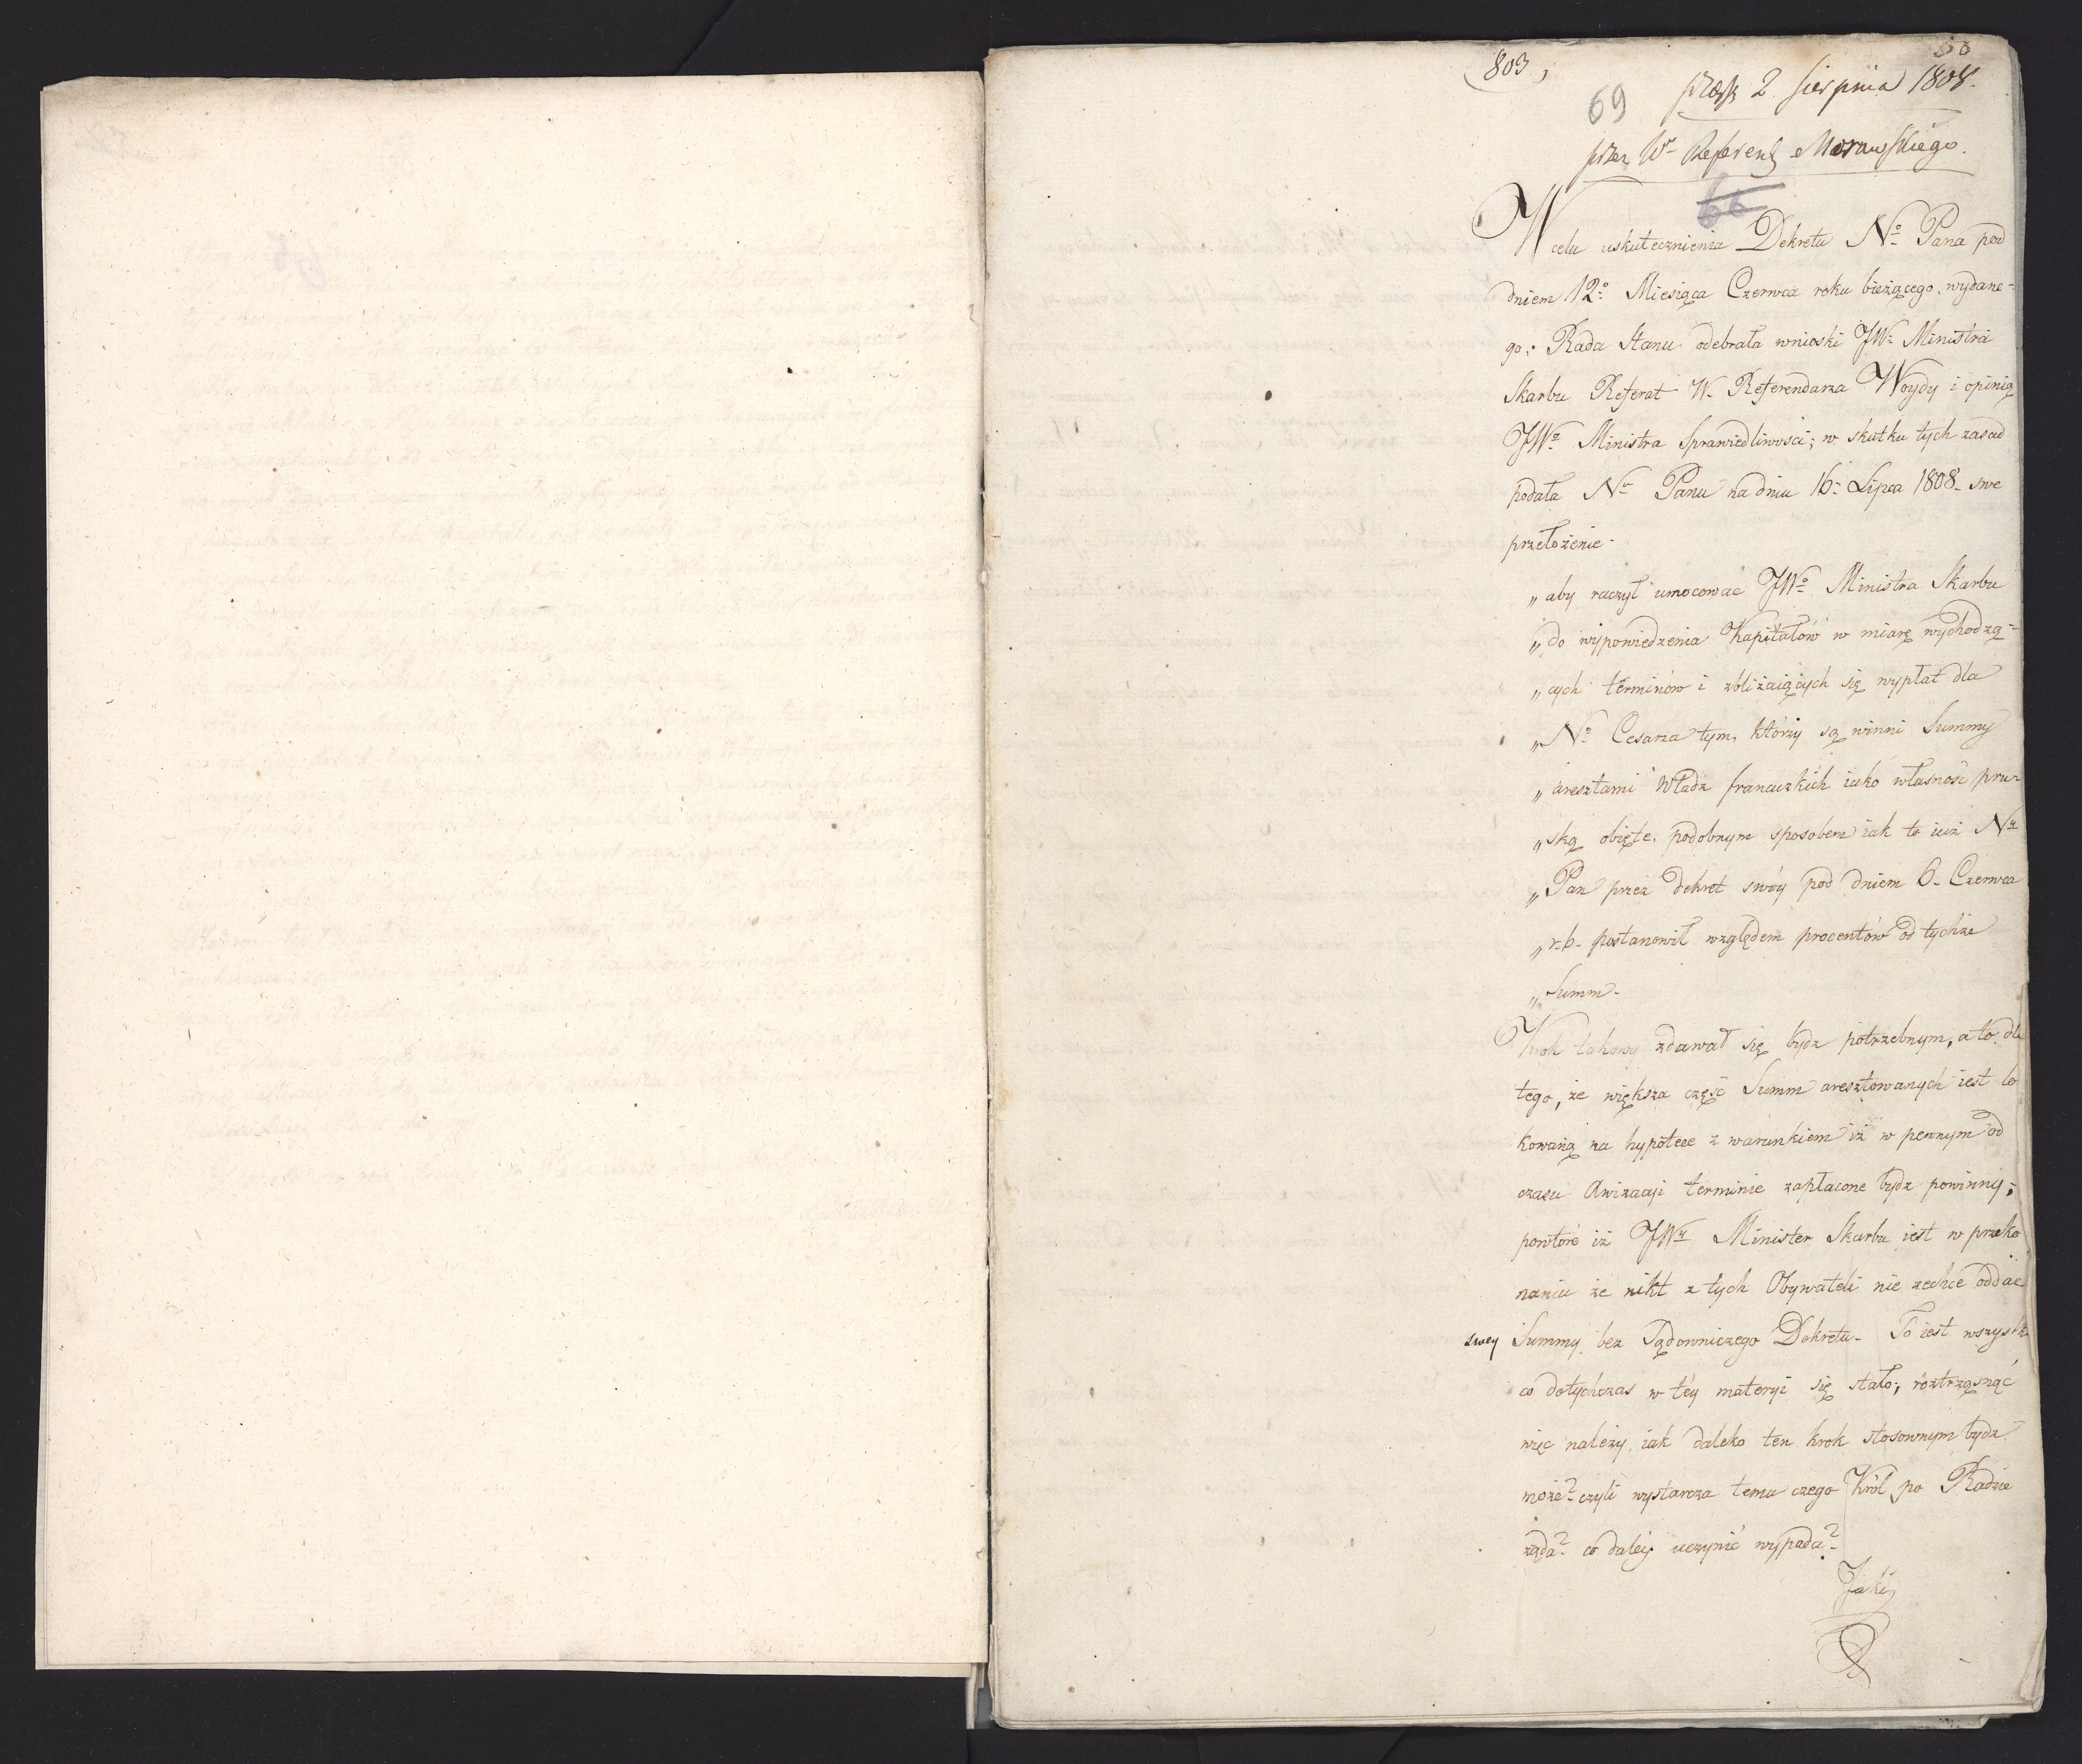 803,
69
2 Sierpnia 1808.
przez Wº Referent Morawskiego.
66
W celu uskutecznienia Dekretu Nº Pana pod
dniem 12º Miesiąca Czerwca roku bieżącego wydane-
go; Rada Stanu odebrała wnioski JWº Ministra
Skarbu Referat W. Referendarza Woydy i opinią
JWº Ministra Sprawiedliwości; w skutku tych zasad
podała Nu Panu na dniu 16º Lipca 1808. swe
przełożenie.
„ aby raczył umocować JWº Ministra Skarbu
„ do wypowiedzenia Kapitałów w miarę wychodzą-
„ cych terminów i zbliżaiących się wypłat dla
„ Nº Cesarza tym, którzy są winni Summy
„ aresztami Władz francuzkich iako własność pru-
„ ską obięte, podobnym sposobem iak to iuż Ny
„ Pan przez dekret swóy pod dniem 6. Czerwca
„ r. b. postanowił względem procentów od tychże
„ Summ.
Krok takowy zdawał się bydz potrzebnym, a to dla
tego, że większa część Summ aresztowanych iest lo
kowaną na hypotece z warunkiem iż w pewnym od
czasu Awizacyi terminie zapłacone bydz powinny;
powtóre iż JWy Minister Skarbu iest w przeko
naniu że nikt z tych Obywateli nie zechce oddać
swey Summy bez Sądowniczego Dekretu. To iest wszystko
co dotychczas w téy materyi się stało; roztrząsnąć
więc należy, iak daleko ten krok stosownym bydz
może? czyli wystarcza temu czego Król po Radzie
żąda? co daléy uczynić wypada?